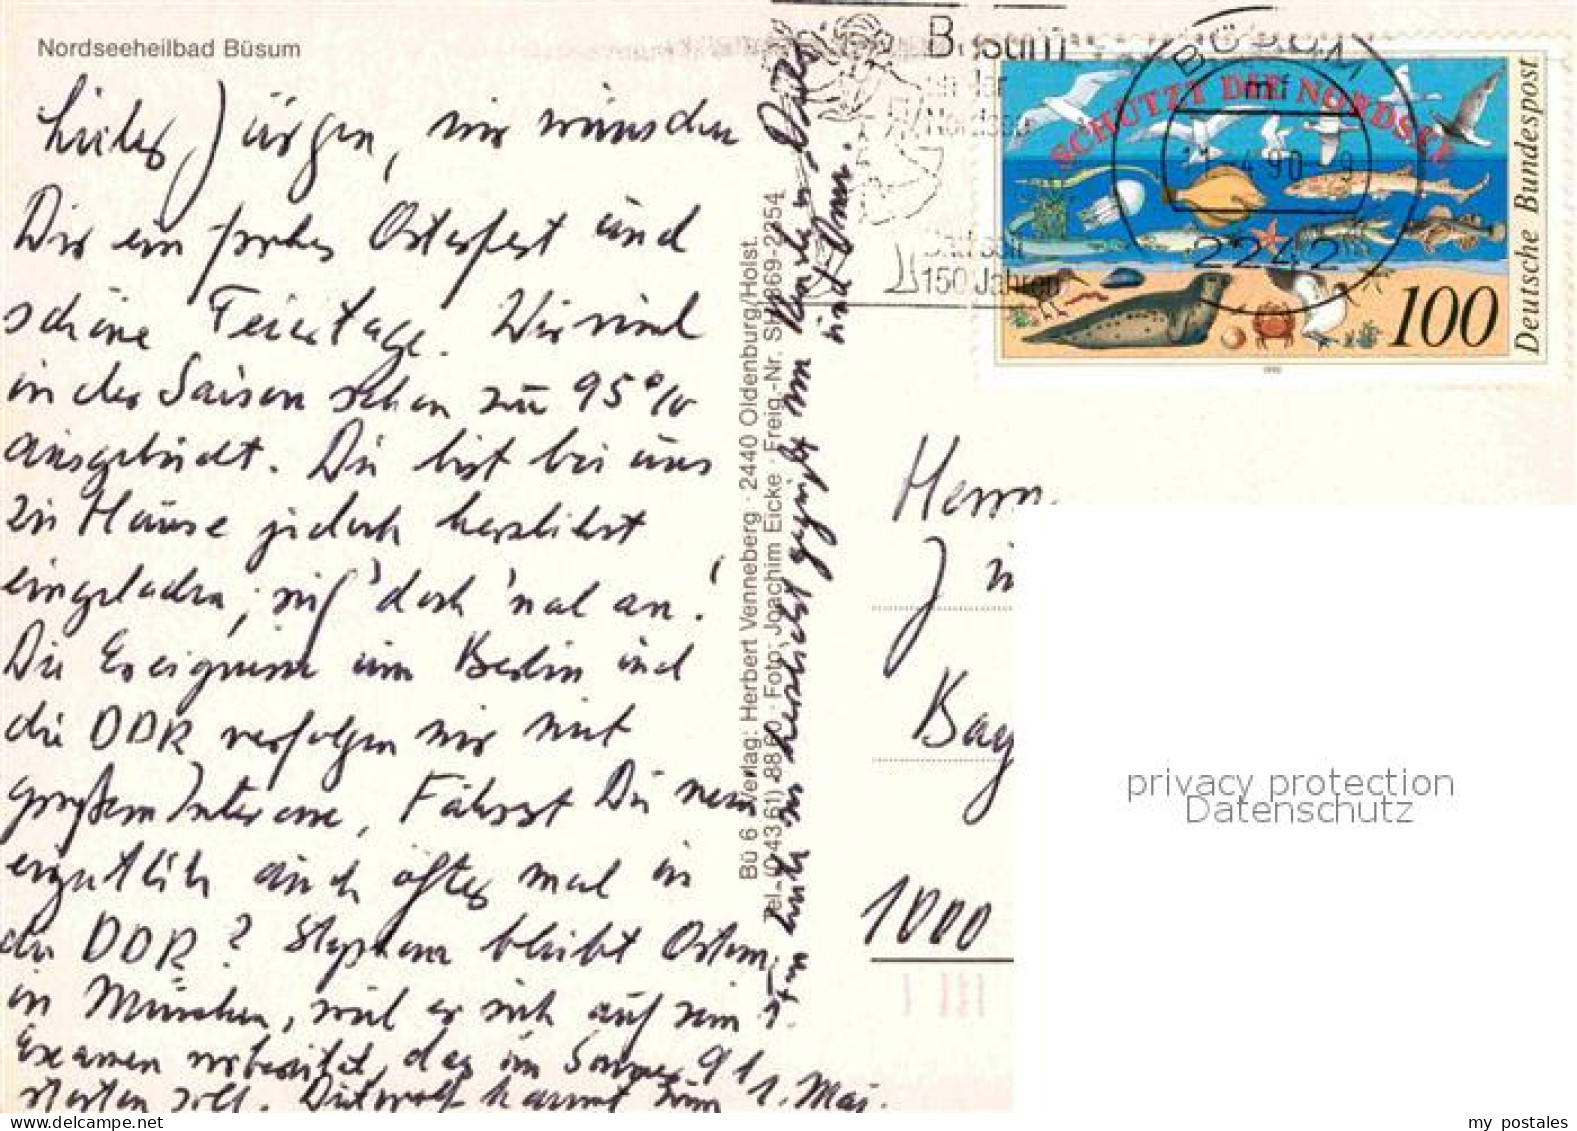 Nordseeheilbad Büsum
Lieber Jürgen, wir wünschen
Dir ein frohes Osterfest und
schöne Feiertage. Wir sind
in der Saison schon zu 95%
ausgebucht. Du bist bei uns
zu Hause jedoch herzlichst
eingeladen, ruf 'doch 'mal an!
Die Ereignisse um Berlin und
die DDR verfolgen wir mit
großem Interesse, Fährst Du nun
eigentlich auch öfter mal in
die DDR? Stephan bleibt Ostern
in München, weil er sich auf sein 1.
Examen vorbereitet, das im Sommer 91
starten soll. Detwolf kommt zum 1. Mai.
sei herzlichst gegrüßt von
und
Bü 6 Verlag: Herbert Venneberg · 2440 Oldenburg/Holst.
Tel. (04361) 8860 · Foto: Joachim Eicke · Freig.-Nr. SH 869-2354
Büsum
an der
Nordsee
Bad seit
150 Jahren
BÜSUM
mf
-4.90-9
2242
SCHÜTZT DIE NORDSEE
100
Deutsche Bundespost
1990
Herrn
Jü
Bay
1000
privacy protection
Datenschutz
www.delcampe.net
my_postales